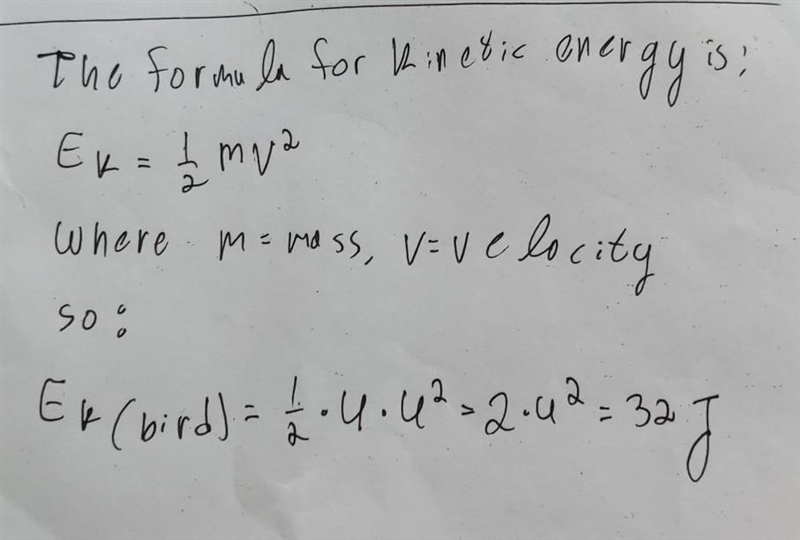 The formula for kinetic energy is:
E_k = 1/2 mv²
Where m = mass, v = velocity
so:
E_k (bird) = 1/2 · 4 · 4² = 2 · 4² = 32 J